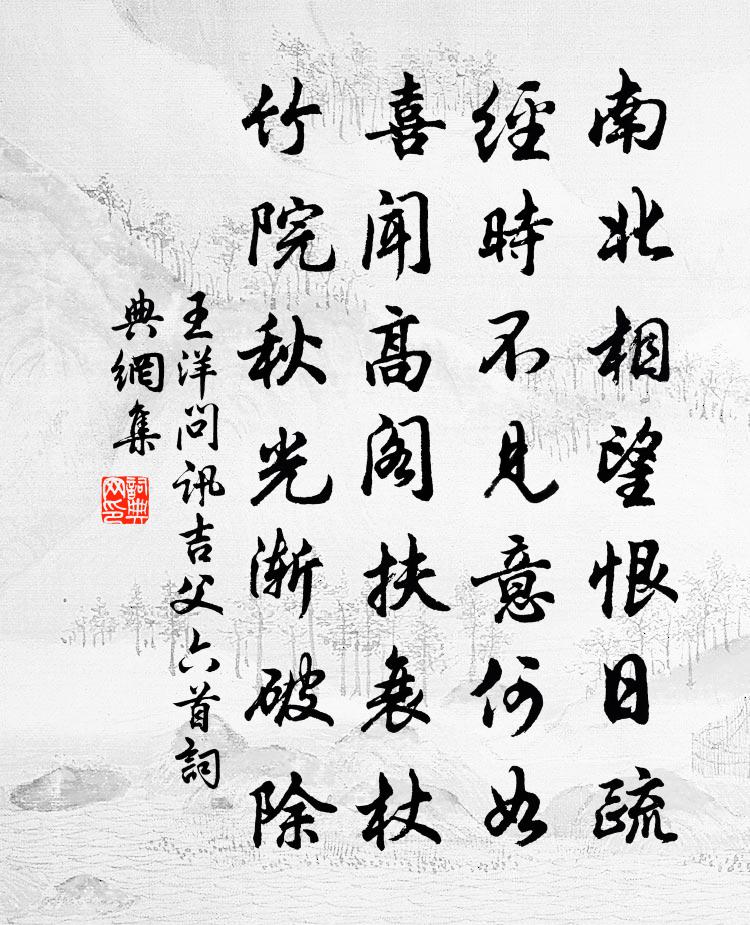 南北相望恨日疏
經時不見意何如
喜聞高閣扶衰杖
竹院秋光漸破除
王洋問訊吉父六首詞
典網集
詞典
网印